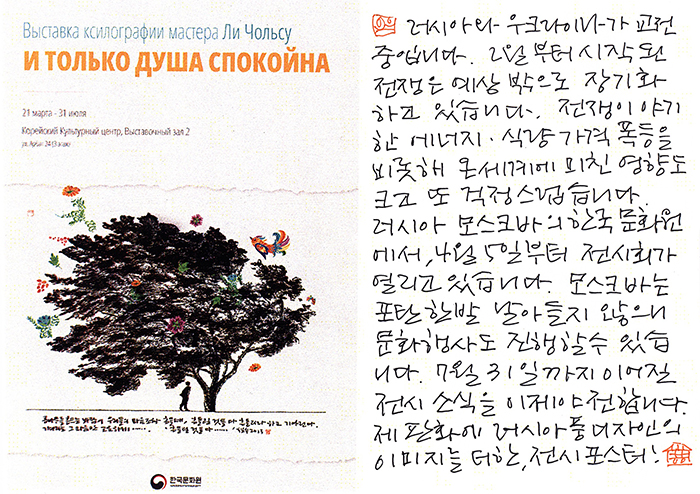 Выставка ксилографии мастера Ли Чольсу
И ТОЛЬКО ДУША СПОКОЙНА
21 марта - 31 июля
Корейский Культурный центр, Выставочный зал 2
ул. Арбат 24 (3 этаж)
한국문화원
러시아와 우크라이나가 교전
중입니다. 2월부터 시작된
전쟁은 예상 밖으로 장기화
하고 있습니다. 전쟁이 야기
한 에너지·식량 가격 폭등을
비롯해 온세계에 미친 영향도
크고 또 걱정스럽습니다.
러시아 모스크바의 한국문화원
에서, 4월 5일부터 전시회가
열리고 있습니다. 모스크바는
포탄 한발 날아들지 않으니
문화행사도 진행할수 있습
니다. 7월 31일까지 이어질
전시 소식을 이제야 전합니다.
제 판화에 러시아풍 디자인의
이미지를 더한, 전시포스터!